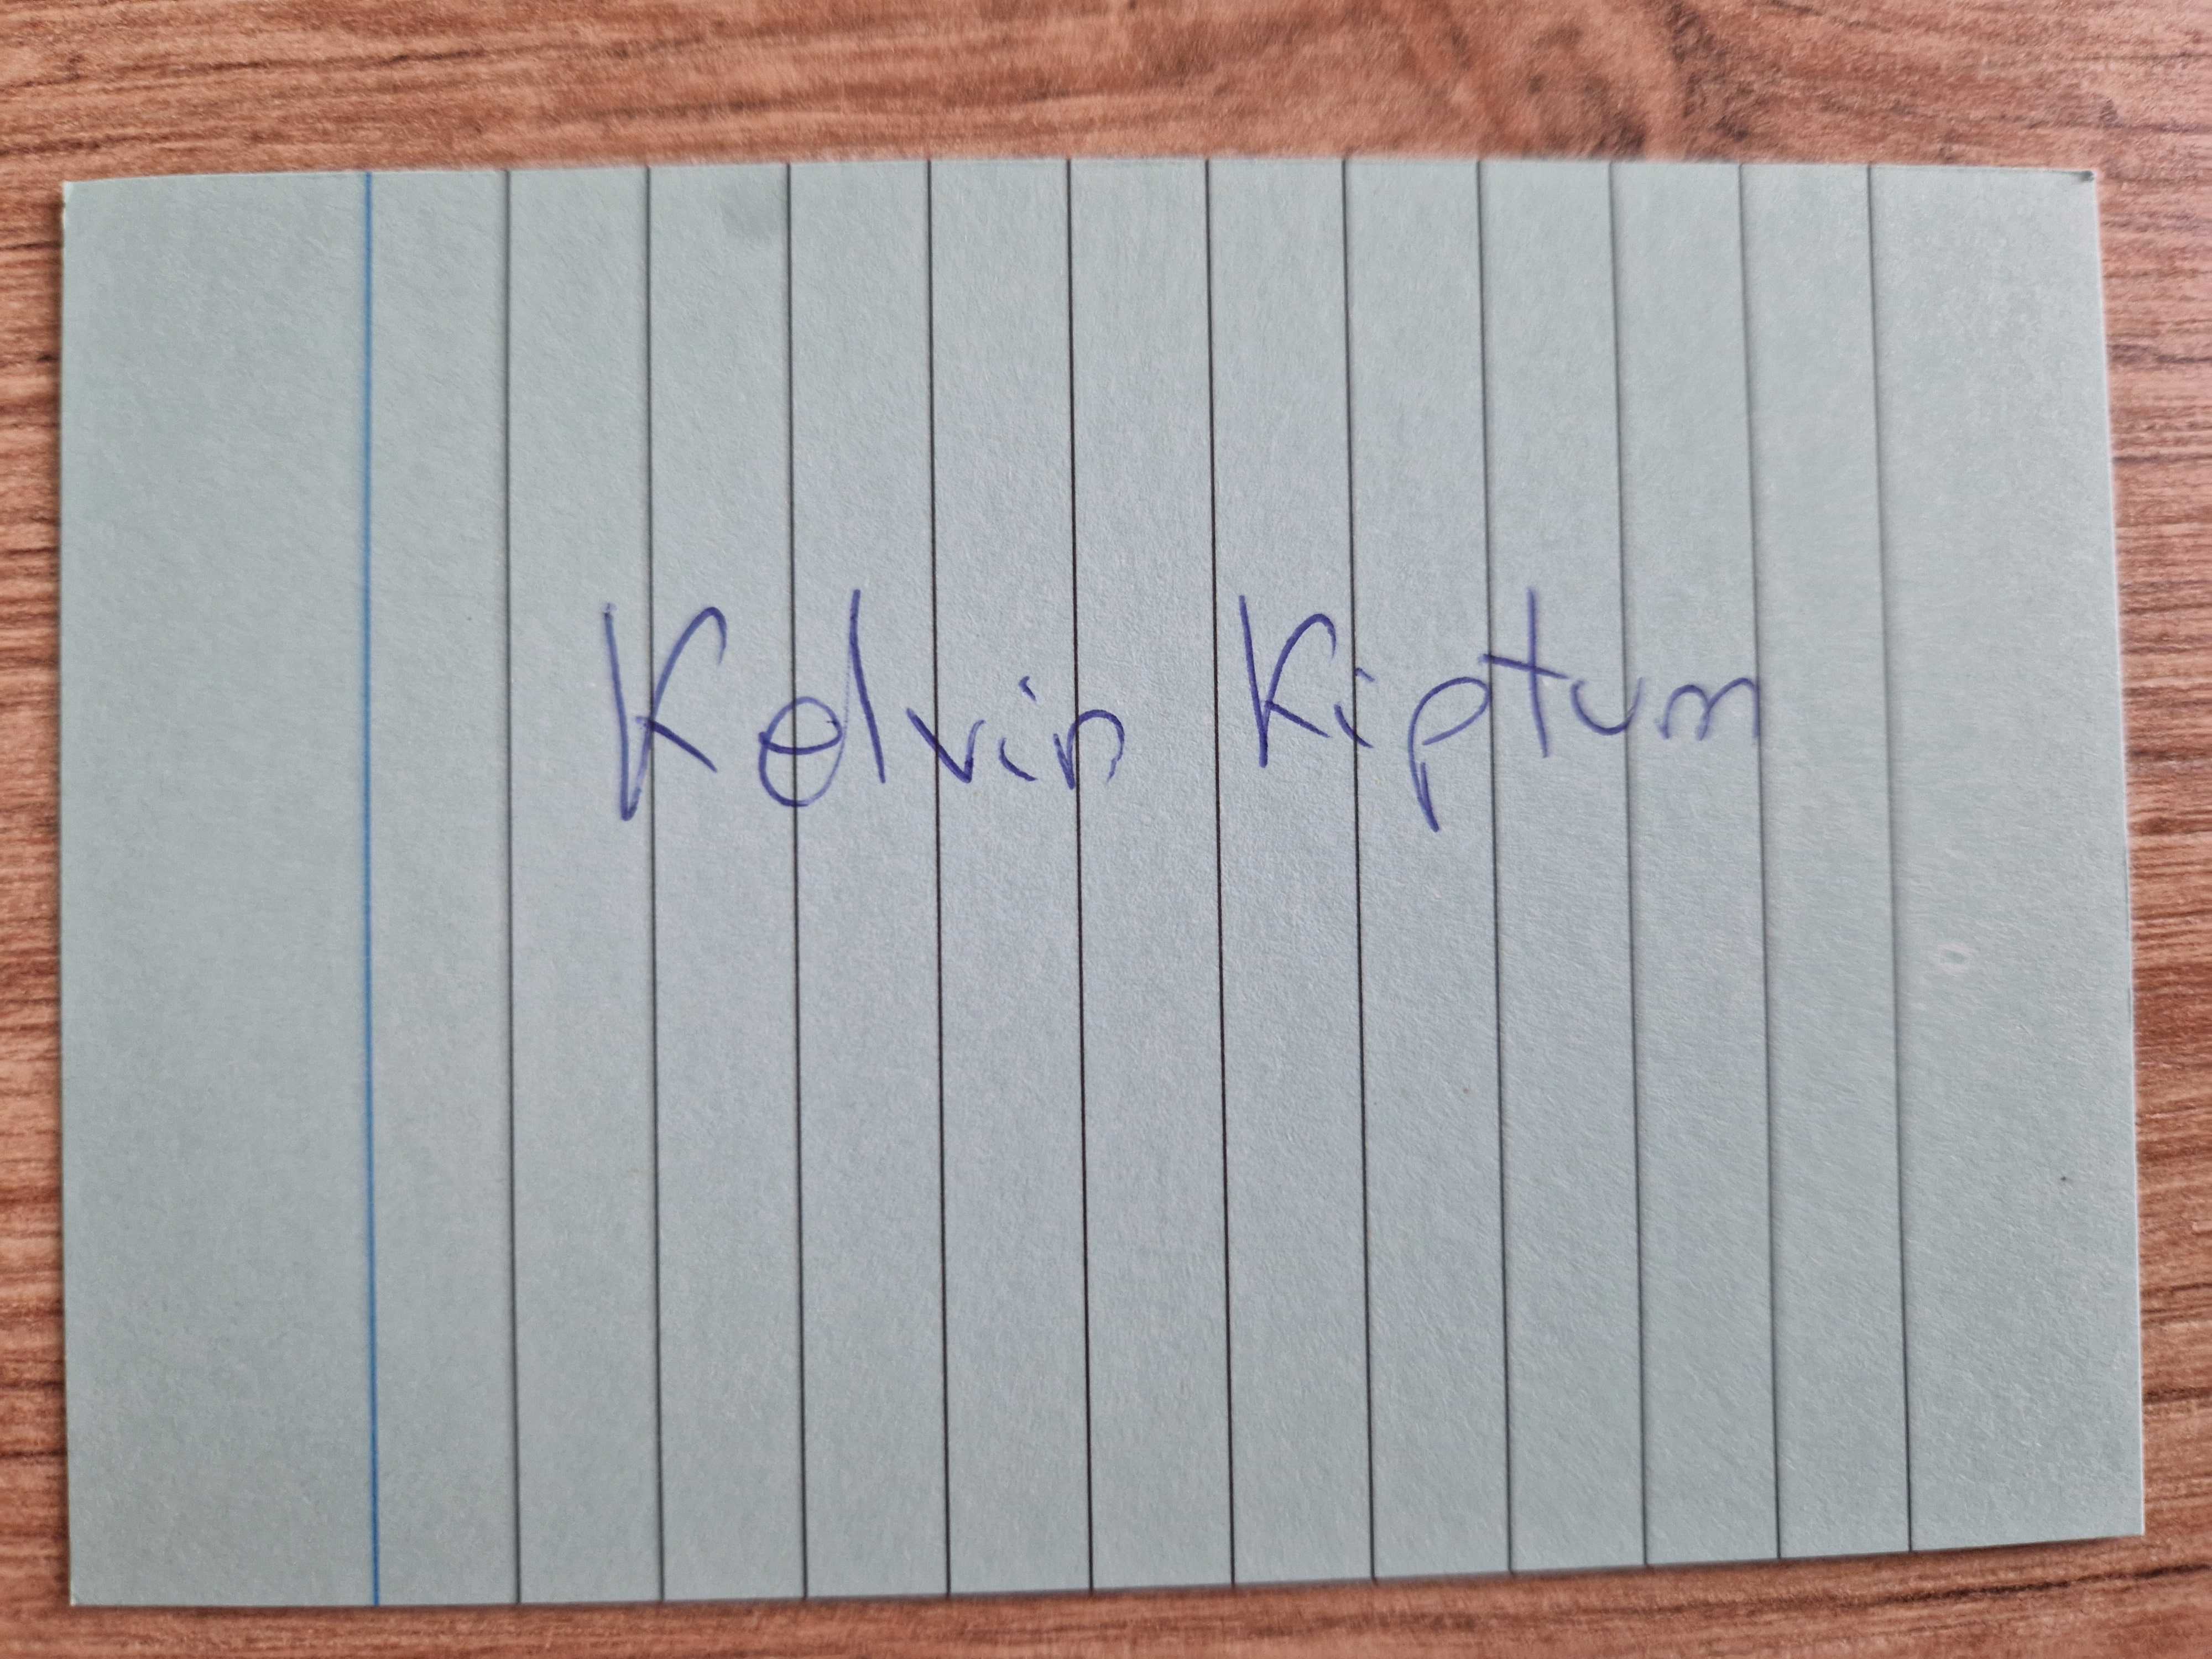 Kelvin Kiptum